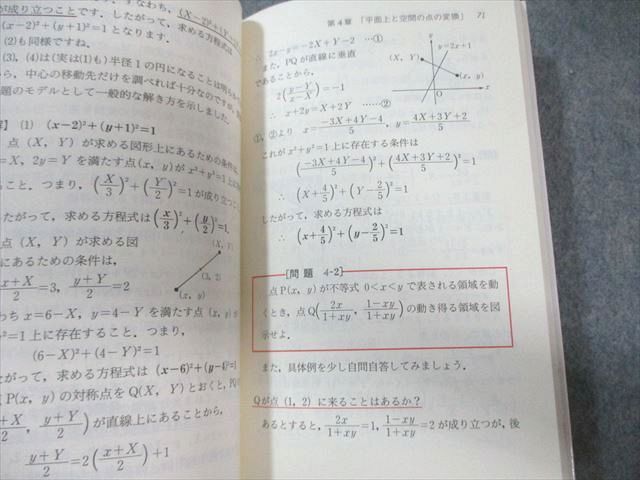 が成り立つことです．したがって，求める方程式は
(x-2)²+(y+1)²=1となります．
(2)も同様ですね．
(3), (4)は(実は(1)も)半径1の円になることは
ら，中心の移動先だけを調べれば十分なのですが，
題のモデルとして一般的な解き方を示しました．
(1) (x-2)²+(y+1)²=1
点 (X, Y) が求める図形上にあるための条件は，
=X, 2y=Y を満たす点(x, y)が x²+y²=1上に
ること．つまり，(X/3)²+(Y/2)²=1が成り立つこ
たがって，求める方程式は(x/3)²+(y/2)²=1.
点 (X, Y) が求める図
にあるための条件は，
x+X/2=3, y+Y/2=2
(X, Y)
(3, 2)
(x, y)
わち x=6-X, y=4-Y を満たす点 (x, y)が
=1上に存在すること．つまり，
(6-X)²+(4-Y)²=1
がって，求める方程式は(x-6)²+(y-4)²=1
点P(x, y) の対称点を Q(X, Y) とおくと，PQ
x+X/2, y+Y/2)が直線上にあることから，
y+Y/2=2(x+X/2)+1
第4章 「平面上と空間の点の変換」 71
∴ 2x-y=-2X+Y-2 …①
また，PQが直線に垂直
であることから，
2(y-Y/x-X)=-1
∴ x+2y=X+2Y ……②
y
y=2x+1
(X, Y)
(x, y)
O
x
①, ②より x=-3X+4Y-4/5, y=4X+3Y+2/5
これが x²+y²=1上に存在する条件は
(-3X+4Y-4/5)²+(4X+3Y+2/5)²=1
∴ (X+4/5)²+(Y-2/5)²=1
したがって，求める方程式は
∴ (x+4/5)²+(y-2/5)²=1
[問題 4-2]
点P(x, y)が不等式 0<x<y で表される領域を動
くとき，点Q(2x/1+xy, 1-xy/1+xy)の動き得る領域を図
示せよ．
また，具体例を少し自問自答してみましょう．
Qが点 (1, 2) に来ることはあるか？
あるとすると，2x/1+xy=1, 1-xy/1+xy=2 が成り立つが，後